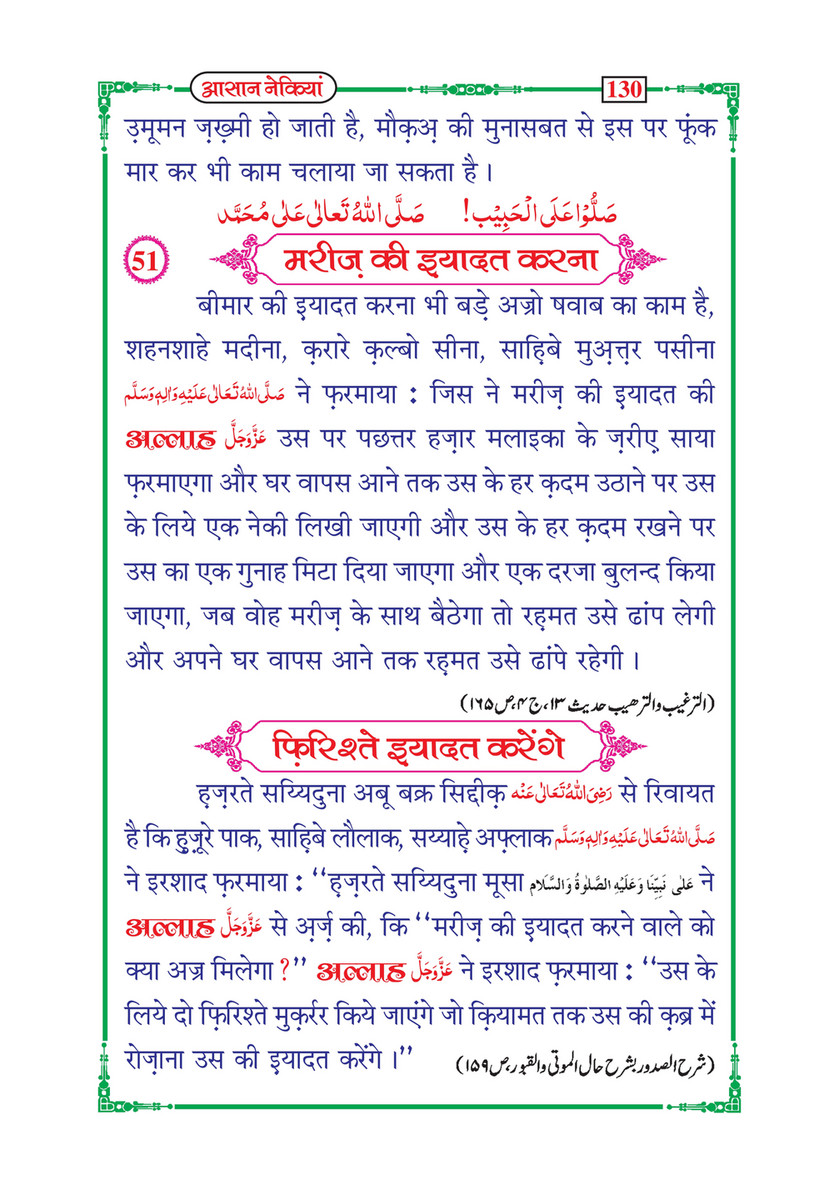 आसान नेकियां
130
उ़मूमन ज़ख़्मी हो जाती है, मौक़अ़ की मुनासबत से इस पर फूंक
मार कर भी काम चलाया जा सकता है ।
صَلُّوْا عَلَی الْحَبِیْب! صَلَّی اللهُ تَعَالٰی عَلٰی مُحَمَّد
51
मरीज़ की इ़यादत करना
बीमार की इ़यादत करना भी बड़े अज्रो षवाब का काम है,
शहनशाहे मदीना, क़रारे क़ल्बो सीना, साह़िबे मुअ़त्त़र पसीना
صَلَّی اللهُ تَعَالٰی عَلَیْہِ وَاٰلِہٖ وَسَلَّم ने फ़रमाया : जिस ने मरीज़ की इ़यादत की
अल्लाह عَزَّوَجَلَّ उस पर पछत्तर हज़ार मलाइका के ज़रीए़ साया
फ़रमाएगा और घर वापस आने तक उस के हर क़दम उठाने पर उस
के लिये एक नेकी लिखी जाएगी और उस के हर क़दम रखने पर
उस का एक गुनाह मिटा दिया जाएगा और एक दरजा बुलन्द किया
जाएगा, जब वोह मरीज़ के साथ बैठेगा तो रह़मत उसे ढांप लेगी
और अपने घर वापस आने तक रह़मत उसे ढांपे रहेगी ।
(الترغیب والترھیب حدیث ۱۳، ج ۴، ص ۱۶۵)
फ़िरिश्ते इ़यादत करेंगे
ह़ज़रते सय्यिदुना अबू बक्र सिद्दीक़ رَضِیَ اللهُ تَعَالٰی عَنْہ से रिवायत
है कि हुज़ूरे पाक, साह़िबे लौलाक, सय्याह़े अफ़्लाक صَلَّی اللهُ تَعَالٰی عَلَیْہِ وَاٰلِہٖ وَسَلَّم
ने इरशाद फ़रमाया : ‘‘ह़ज़रते सय्यिदुना मूसा عَلٰی نَبِیِّنَا وَعَلَیْہِ الصَّلٰوۃُ وَالسَّلَام ने
अल्लाह عَزَّوَجَلَّ से अ़र्ज़ की, कि ‘‘मरीज़ की इ़यादत करने वाले को
क्या अज्र मिलेगा ?’’ अल्लाह عَزَّوَجَلَّ ने इरशाद फ़रमाया : ‘‘उस के
लिये दो फ़िरिश्ते मुक़र्रर किये जाएंगे जो क़ियामत तक उस की क़ब्र में
रोज़ाना उस की इ़यादत करेंगे ।’’ (شرح الصدور بشرح حال الموتی والقبور، ص ۱۵۹)